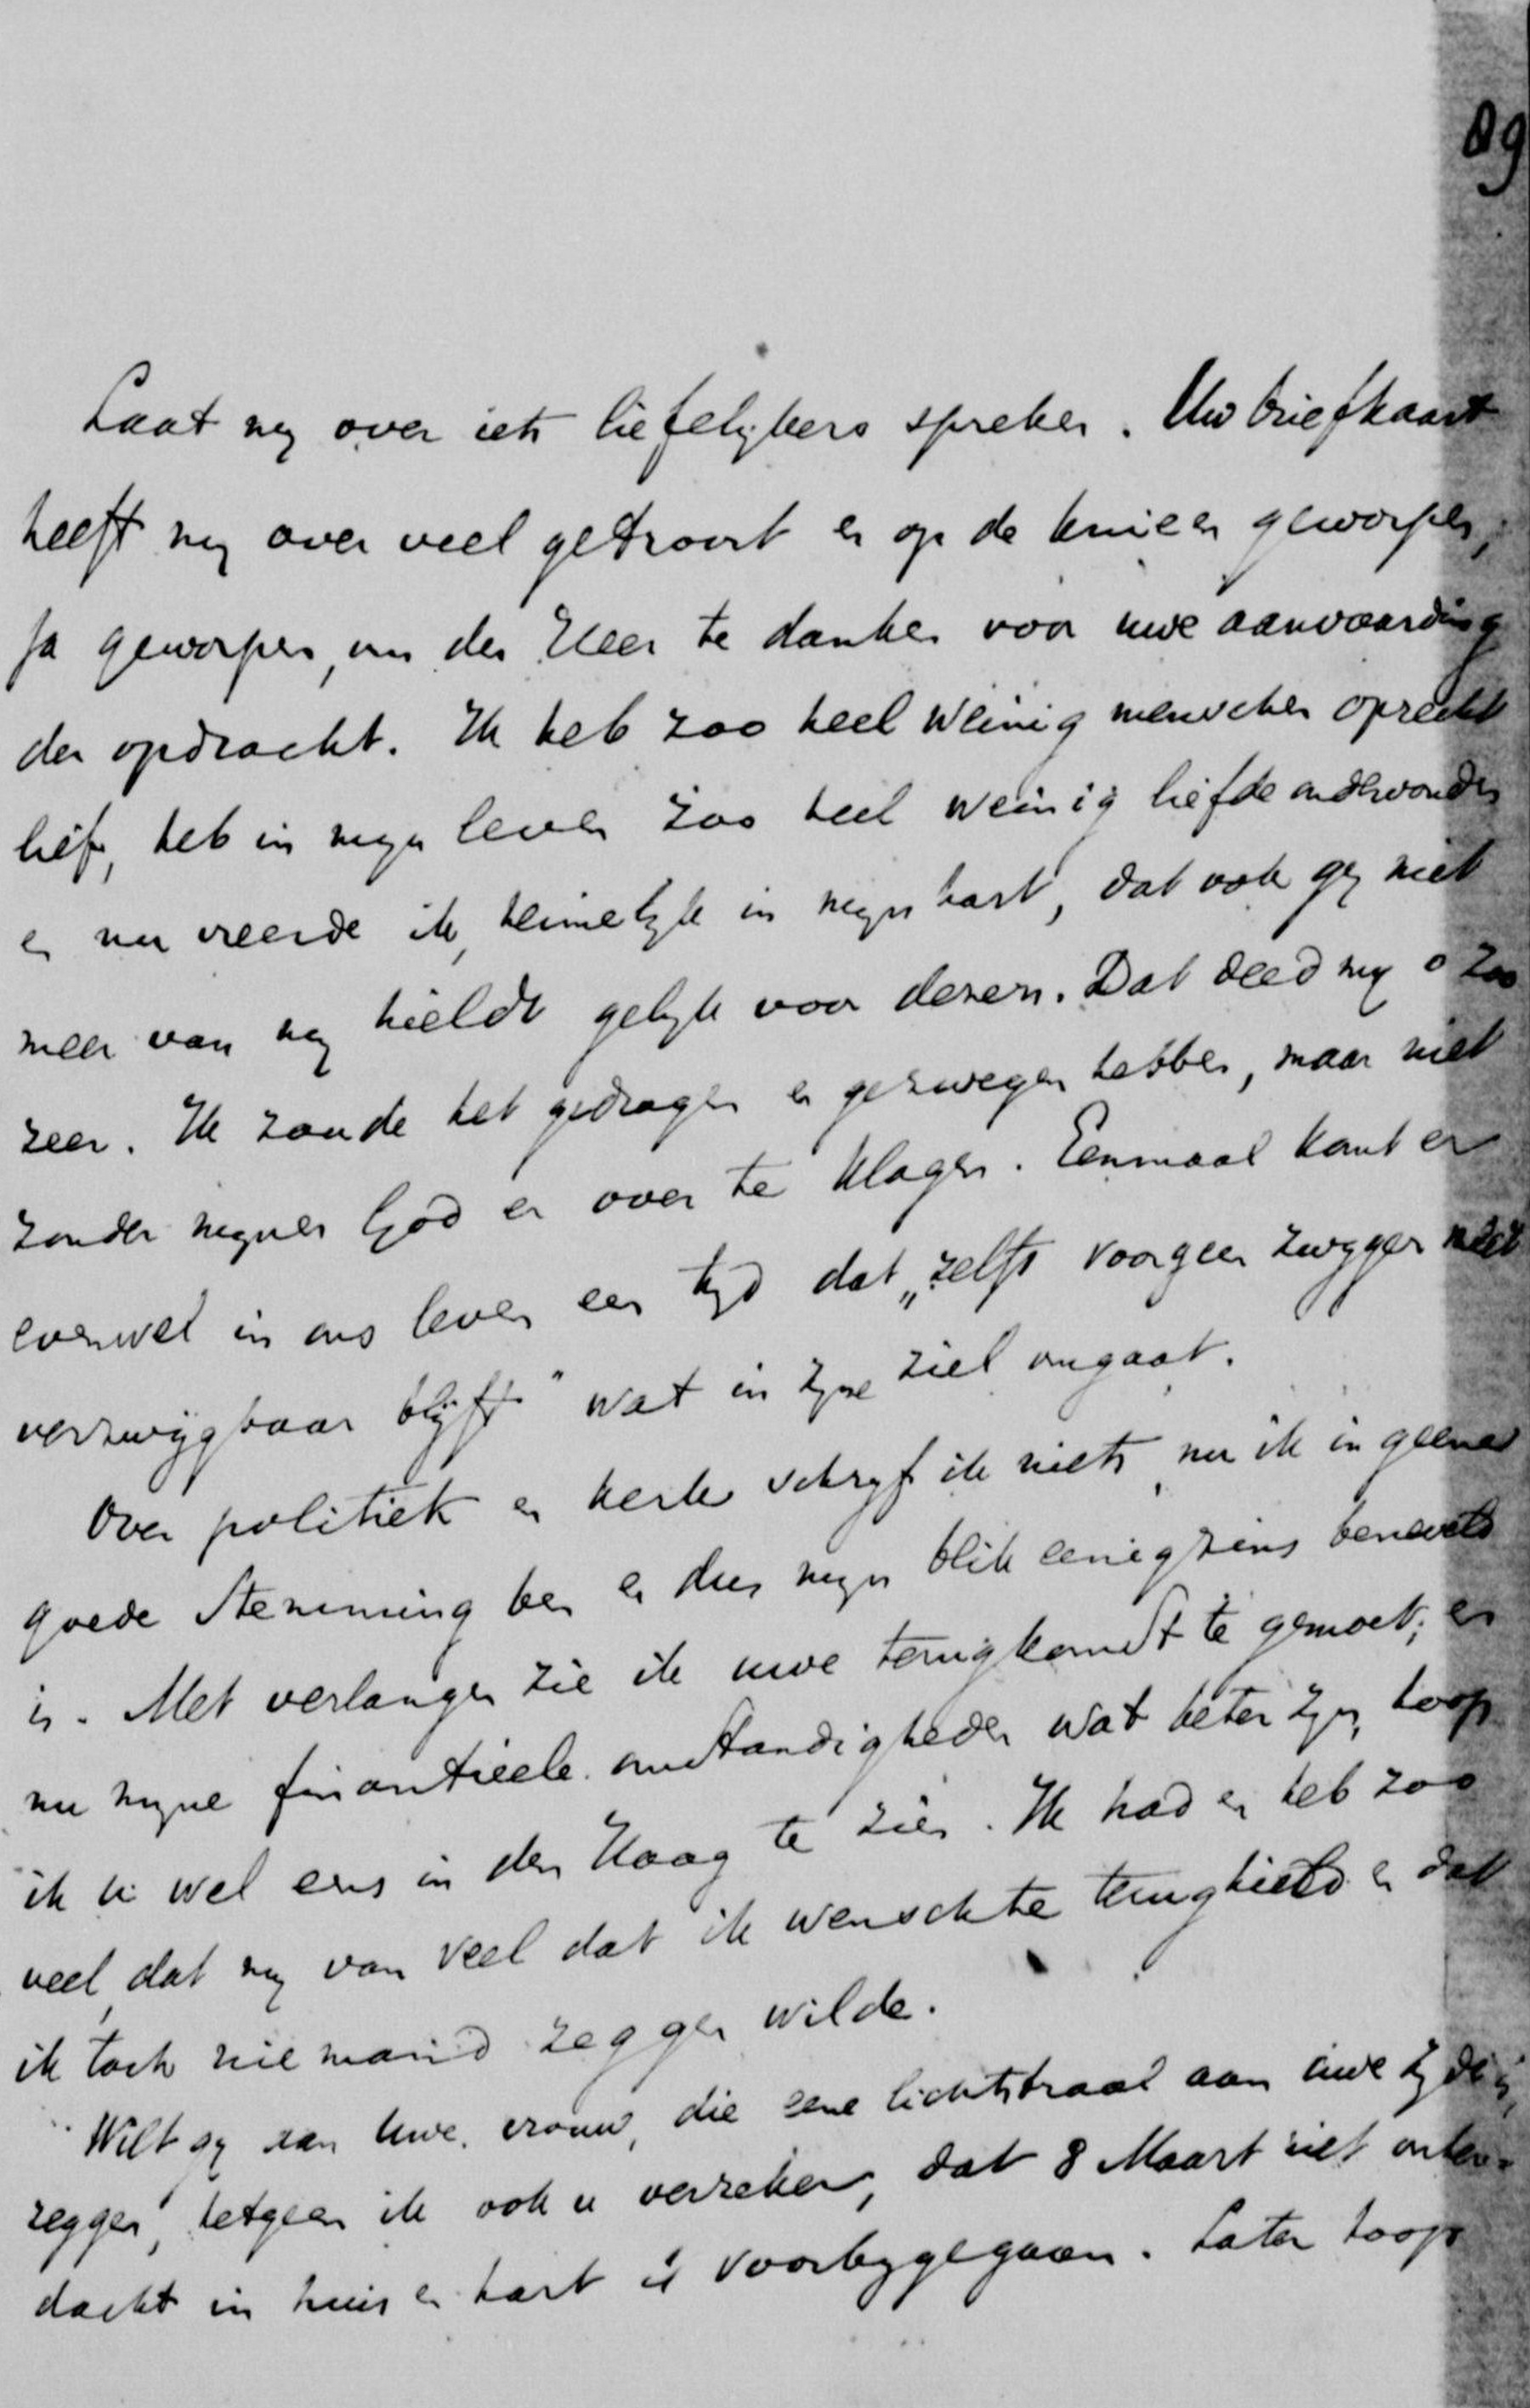 89
Laat my over iets liefelykers spreken. Uw briefkaart
heeft my over veel getroost en op de knieen geworpen,
ja geworpen, om den Heer te danken voor uwe aanvaarding
der opdracht. Ik heb zoo heel weinig menschen oprecht
lief, heb in mijn leven zoo heel weinig liefde ondervonden
en nu vreesde ik, heimelyk in myn hart, dat ook gy niet
meer van my hieldt gelyk voor dezen. Dat deed my o zoo
zeer. Ik zoude het gedragen en gezwegen hebben, maar niet
zonder mynen God er over te klagen. Eenmaal komt er
evenwel in ons leven een tyd dat „zelfs voor geen zwyger niet
verzwijgbaar blijft" wat in zyne ziel omgaat.
Over politiek en kerk schryf ik niets, nu ik in geene
goede stemming ben en dus myn blik eenigzins beneveld
is. Met verlangen zie ik uwe terugkomst te gemoet; en
nu myne finantieele omstandigheden wat beter zyn, hoop
ik u wel eens in den Haag te zien. Ik had en heb zoo
veel, dat my van veel dat ik wenschte terughield en dat
ik toch niemand zeggen wilde.
Wilt gy aan Uwe vrouw, die eene lichtstraal aan uwe zyde is,
zeggen, hetgeen ik ook u verzeker, dat 8 Maart niet onher-
dacht in huis en hart is voorbygegaan. Later hoop